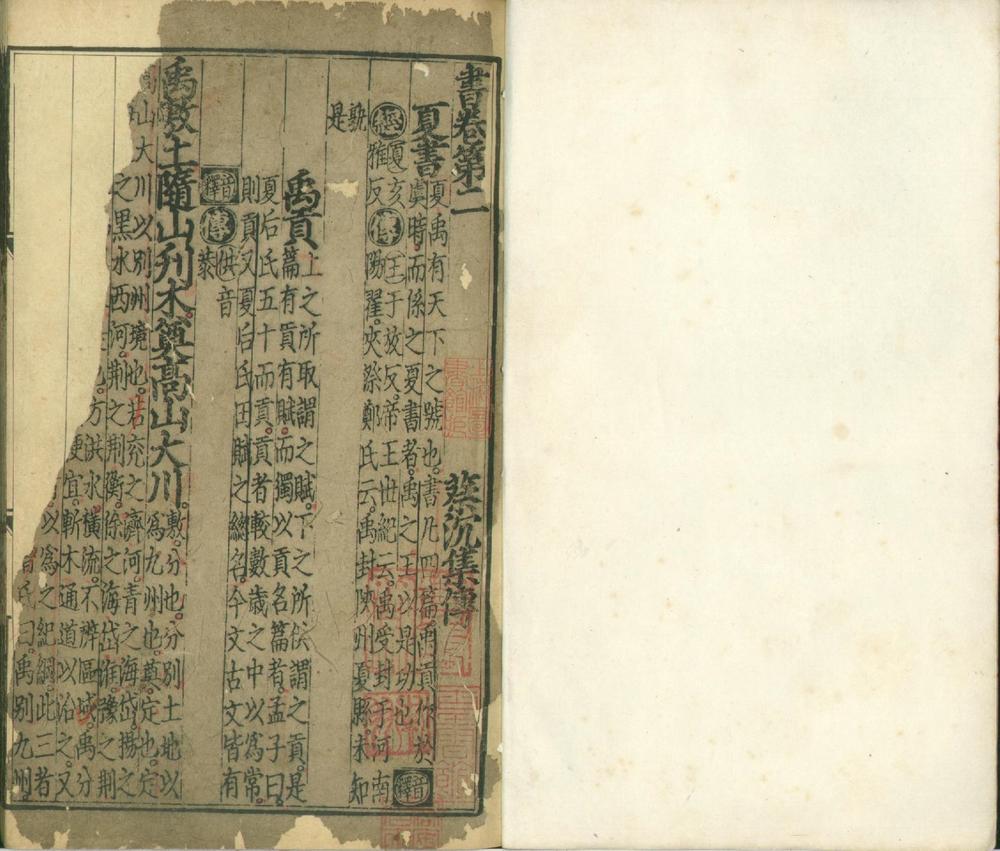 書卷第二 蔡沉集傳
夏書 夏禹有天下之號也。書凡四篇。禹貢作於
虞時。而係之夏書者。禹之王以是功也 音釋
經 夏亥
雅反
傳 王于放反。帝王世紀云。禹受封于河南
陽翟。夾漈鄭氏云。禹封陝州夏縣未知
孰
是
禹貢 上之所取謂之賦。下之所供謂之貢。是
篇有貢有賦。而獨以貢名篇者。孟子曰。
夏后氏五十而貢。貢者較數歲之中以為常。
則貢又夏后氏田賦之總名。今文古文皆有
音釋 傳 供音
恭
禹敷土隨山刋木奠高山大川。敷。分也。分別土地以
為九州也。奠。定也。定
高山大川以別州境也。若兗之濟河。青之海岱。揚之
之黑水西河。荊之荊衡。徐之海岱淮。豫之荊
方洪水橫流。不辨區域。禹分
便宜。斬木通道以治之。又
以為之紀綱。此三者
曾氏曰。禹別九州。